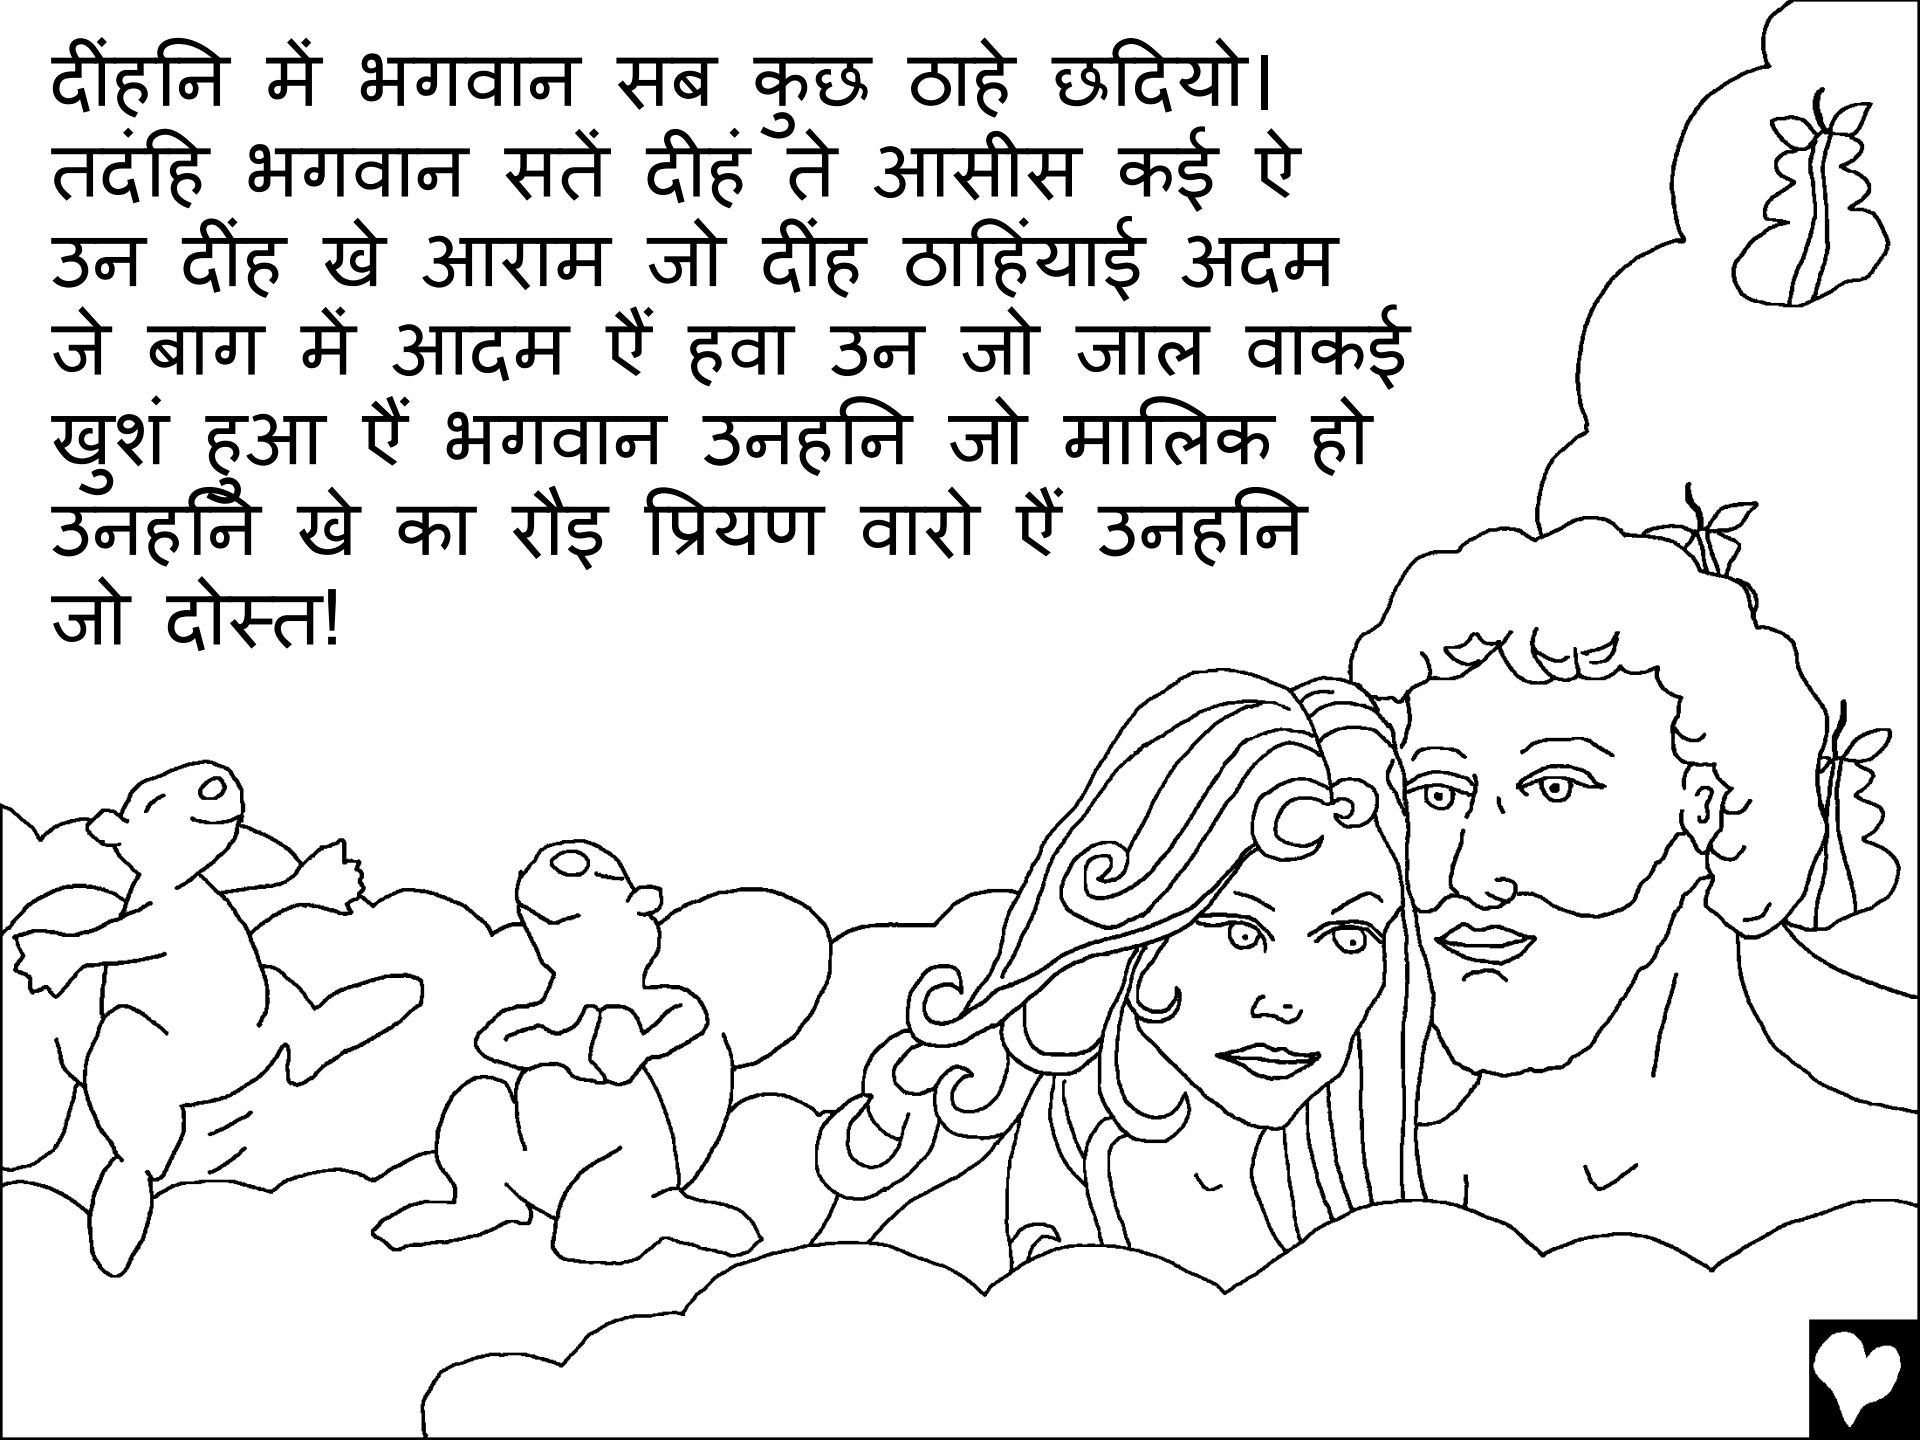 दींहनि में भगवान सब कुछ ठाहे छदियो।
तदंहि भगवान सतें दीहं ते आसीस कई ऐ
उन दींह खे आराम जो दींह ठाहिंयाई अदम
जे बाग में आदम एैं हवा उन जो जाल वाकई
खुशं हुआ एैं भगवान उनहनि जो मालिक हो
उनहनि खे का रौइ प्रियण वारो एैं उनहनि
जो दोस्त!